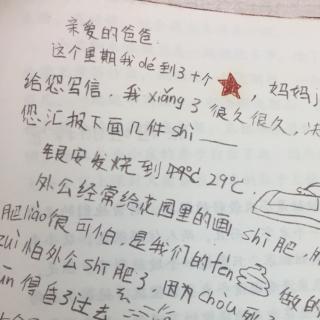 亲爱的爸爸.
这个星期我dé到3+个★，妈妈
给您写信，我xiǎng了很久很久，决
您汇报下面几件shì
银安发烧到49℃ 29℃.
外公经常给花园里的画 shī肥，
肥liào很可怕，是我们的fèn 做的
zuì怕外公shī肥了，因为chòu死
得昏了过去